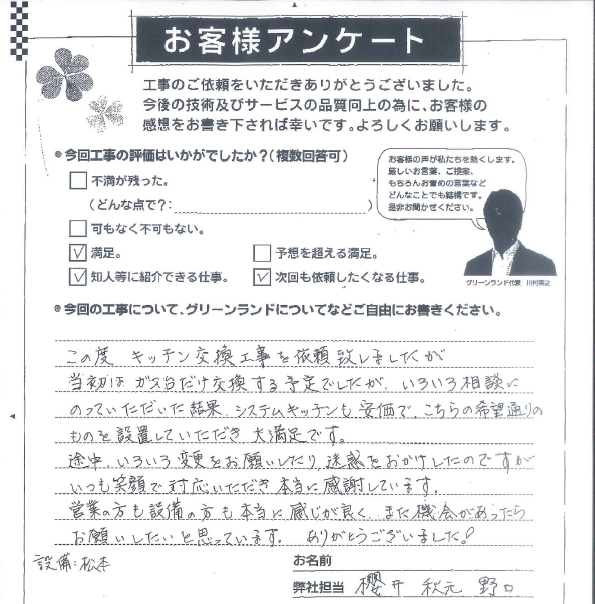 お客様アンケート
工事のご依頼をいただきありがとうございました。
今後の技術及びサービスの品質向上の為に、お客様の
感想をお書き下されば幸いです。よろしくお願いします。
今回工事の評価はいかがでしたか?(複数回答可)
不満が残った。
(どんな点で?: )
可もなく不可もない。
満足。
予想を超える満足。
知人等に紹介できる仕事。
次回も依頼したくなる仕事。
お客様の声が私たちを熱くします。
厳しいお言葉、ご提案、
もちろんお誉めの言葉など
どんなことでも結構です。
是非お聞かせください。
グリーンランド代表 川村英之
今回の工事について、グリーンランドについてなどご自由にお書きください。
この度 キッチン交換工事を依頼致しましたが
当初は ガス台だけ交換する予定でしたが、いろいろ相談に
のっていただいた結果、システムキッチンも安価で、こちらの希望通りの
ものを設置していただき 大満足です。
途中、いろいろ変更をお願いしたり、迷惑をおかけしたのですが
いつも笑顔で対応いただき本当に感謝しています。
営業の方も設備の方も本当に感じが良く、また機会があったら
お願いしたいと思っています。 ありがとうございました!
設備:松本
お名前
弊社担当 櫻井 秋元 野口